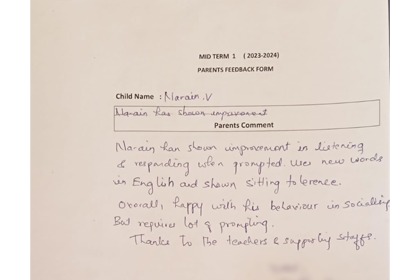 MID TERM 1 (2023-2024)
PARENTS FEEDBACK FORM
Child Name : Narain.V
Narain has shown improvement
Parents Comment
Narain has shown improvement in listening
& responding when prompted. Uses new words
in English and shown sitting tolerence.
Overall, happy with his behaviour in socialising
But requires lot of prompting.
Thanks to the teachers & supporting staffs.